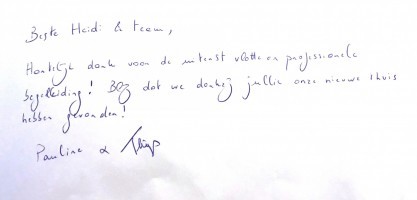 Beste Heidi & team,
Hartelijk dank voor de uiterst vlotte en professionele
begeleiding! Blij dat we dankzij jullie onze nieuwe thuis
hebben gevonden!
Pauline &